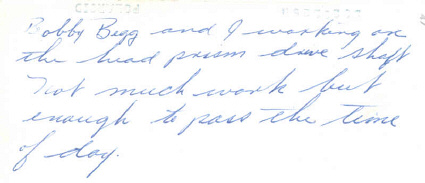 Bobby Begg and I working on
the head prism drive shaft
Not much work but
enough to pass the time
of day.